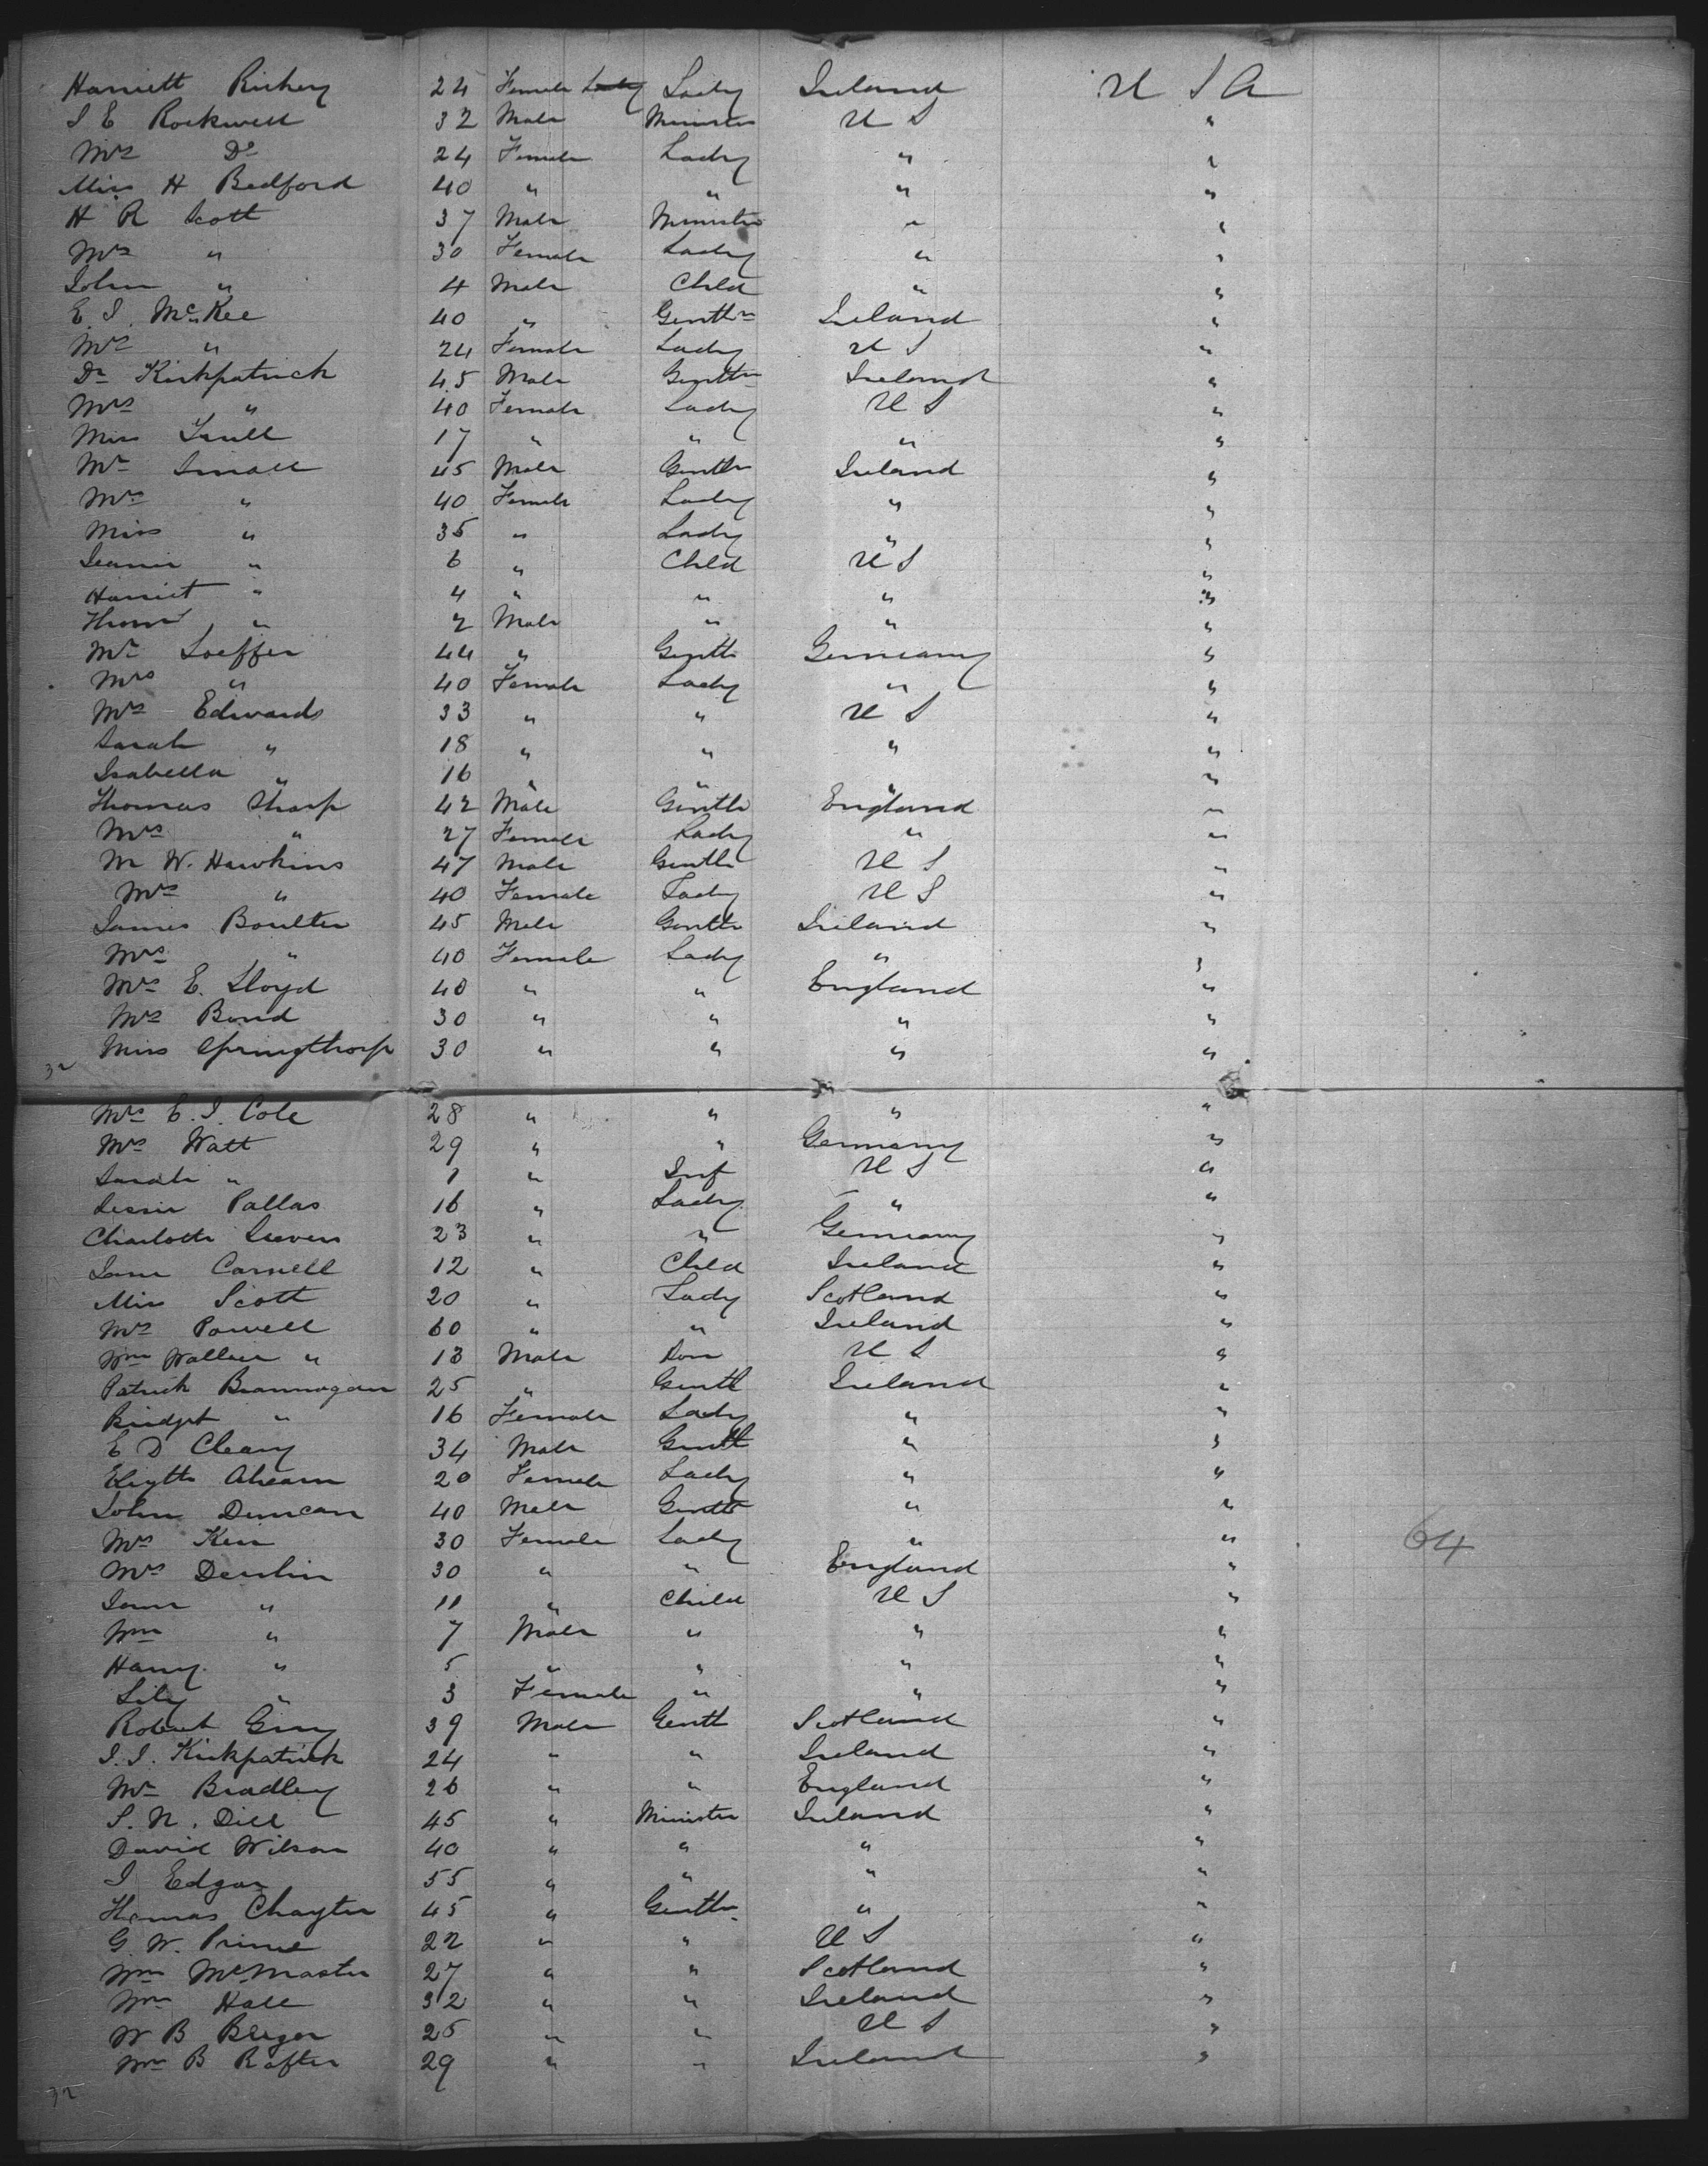 Harriett Richey 24 Female Lady Lady Ireland U S A
J E Rockwell 32 Male Minister U S "
Mrs Do 24 Female Lady " "
Miss H Bedford 40 " " " "
H R Scott 37 Male Minister " "
Mrs " 30 Female Lady " "
John " 4 Male Child " "
E. J. McKee 40 " Gentln Ireland "
Mrs " 24 Female Lady U S "
Dr Kirkpatrick 45 Male Gentln Ireland "
Mrs " 40 Female Lady U S "
Miss 17 " " " "
Mr Small 45 Male Gentln Ireland "
Mrs " 40 Female Lady " "
Miss " 35 " Lady " "
Jeanie " 6 " Child U S "
Harriet " 4 " " " "
Thoms " 2 Male " " "
Mr Loeffer 44 " Gentln Germany "
Mrs " 40 Female Lady " "
Mrs Edwards 33 " " U S "
Sarah " 18 " " " "
Isabella " 16 " " " "
Thomas Sharp 42 Male Gentln England "
Mrs " 27 Female Lady " "
M W. Hawkins 47 Male Gentln U S "
Mrs " 40 Female Lady U S "
James Boulter 45 Male Gentln Ireland "
Mrs " 40 Female Lady " "
Mrs E. Lloyd 40 " " England "
Mrs Bond 30 " " " "
Miss Springthorp 30 " " " "
32
Mrs E. J. Cole 28 " " " "
Mrs Watt 29 " " Germany "
Sarah " 1 " Inf U S "
Lessie Pallas 16 " Lady " "
Charlotte Sievers 23 " " Germany "
Jane Carnell 12 " Child Ireland "
Miss Scott 20 " Lady Scotland "
Mrs Powell 60 " " Ireland "
Wm Wallace " 13 Male Son U S "
Patrick Brannogan 25 " Gentl Ireland "
Bridget " 16 Female Lady " "
E D Cleary 34 Male Gentl " "
Ahearn 20 Female Lady " "
John Duncan 40 Male Gentl " "
Mrs Kerr 30 Female Lady " "
64
Mrs Devlin 30 " " England "
Jane " 11 " Child U S "
Wm " 7 Male " " "
Harry " 5 " " " "
Lily " 3 Female " " "
Robert Grey 39 Male Gentl Scotland "
J. J. Kirkpatrick 24 " " Ireland "
Mr Bradley 26 " " England "
S. N. Dill 45 " Minister Ireland "
David Wilson 40 " " " "
J Edgar 55 " " " "
Thomas Chayter 45 " Gentln " "
G. W. Prime 22 " " U S "
Wm McMaster 27 " " Scotland "
Wm Hall 32 " " Ireland "
W B 25 " " U S "
Wm B Rafter 29 " " Ireland "
32